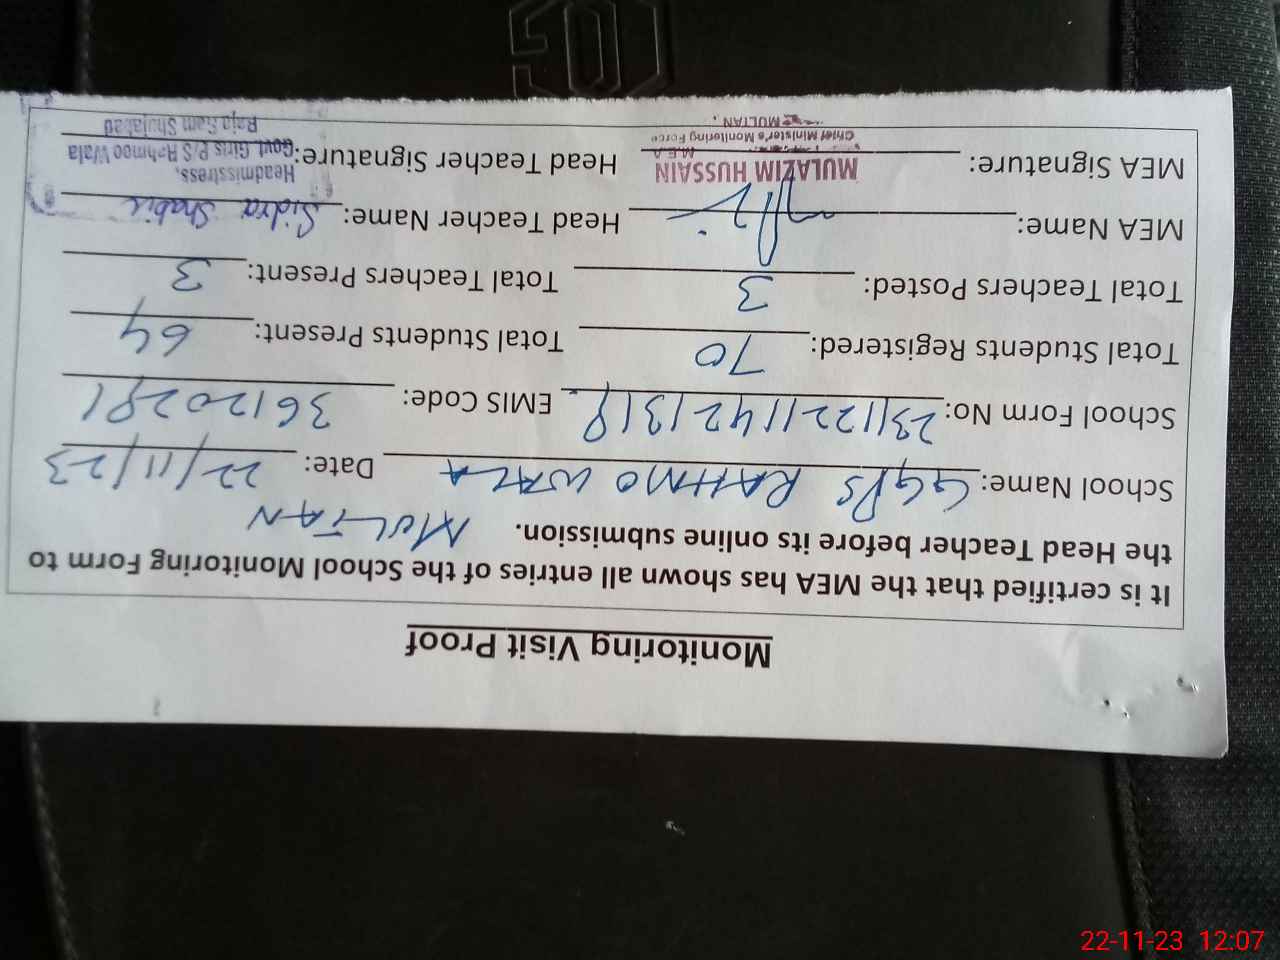 Monitoring Visit Proof
It is certified that the MEA has shown all entries of the School Monitoring Form to
the Head Teacher before its online submission. MULTAN
School Name: GGPS RAHMO WALA Date: 22/11/23
School Form No: 23112211421319 EMIS Code: 36120291
Total Students Registered: 70 Total Students Present: 64
Total Teachers Posted: 3 Total Teachers Present: 3
MEA Name: Head Teacher Name: Sidra Shabir
MEA Signature: Head Teacher Signature:
MULAZIM HUSSAIN
M.E.A
Chief Minister's Monitoring Force
MULTAN.
Headmisstress,
Govt. Girls P/S Rahmoo Wala
Raja Ram Shujabad
22-11-23 12:07